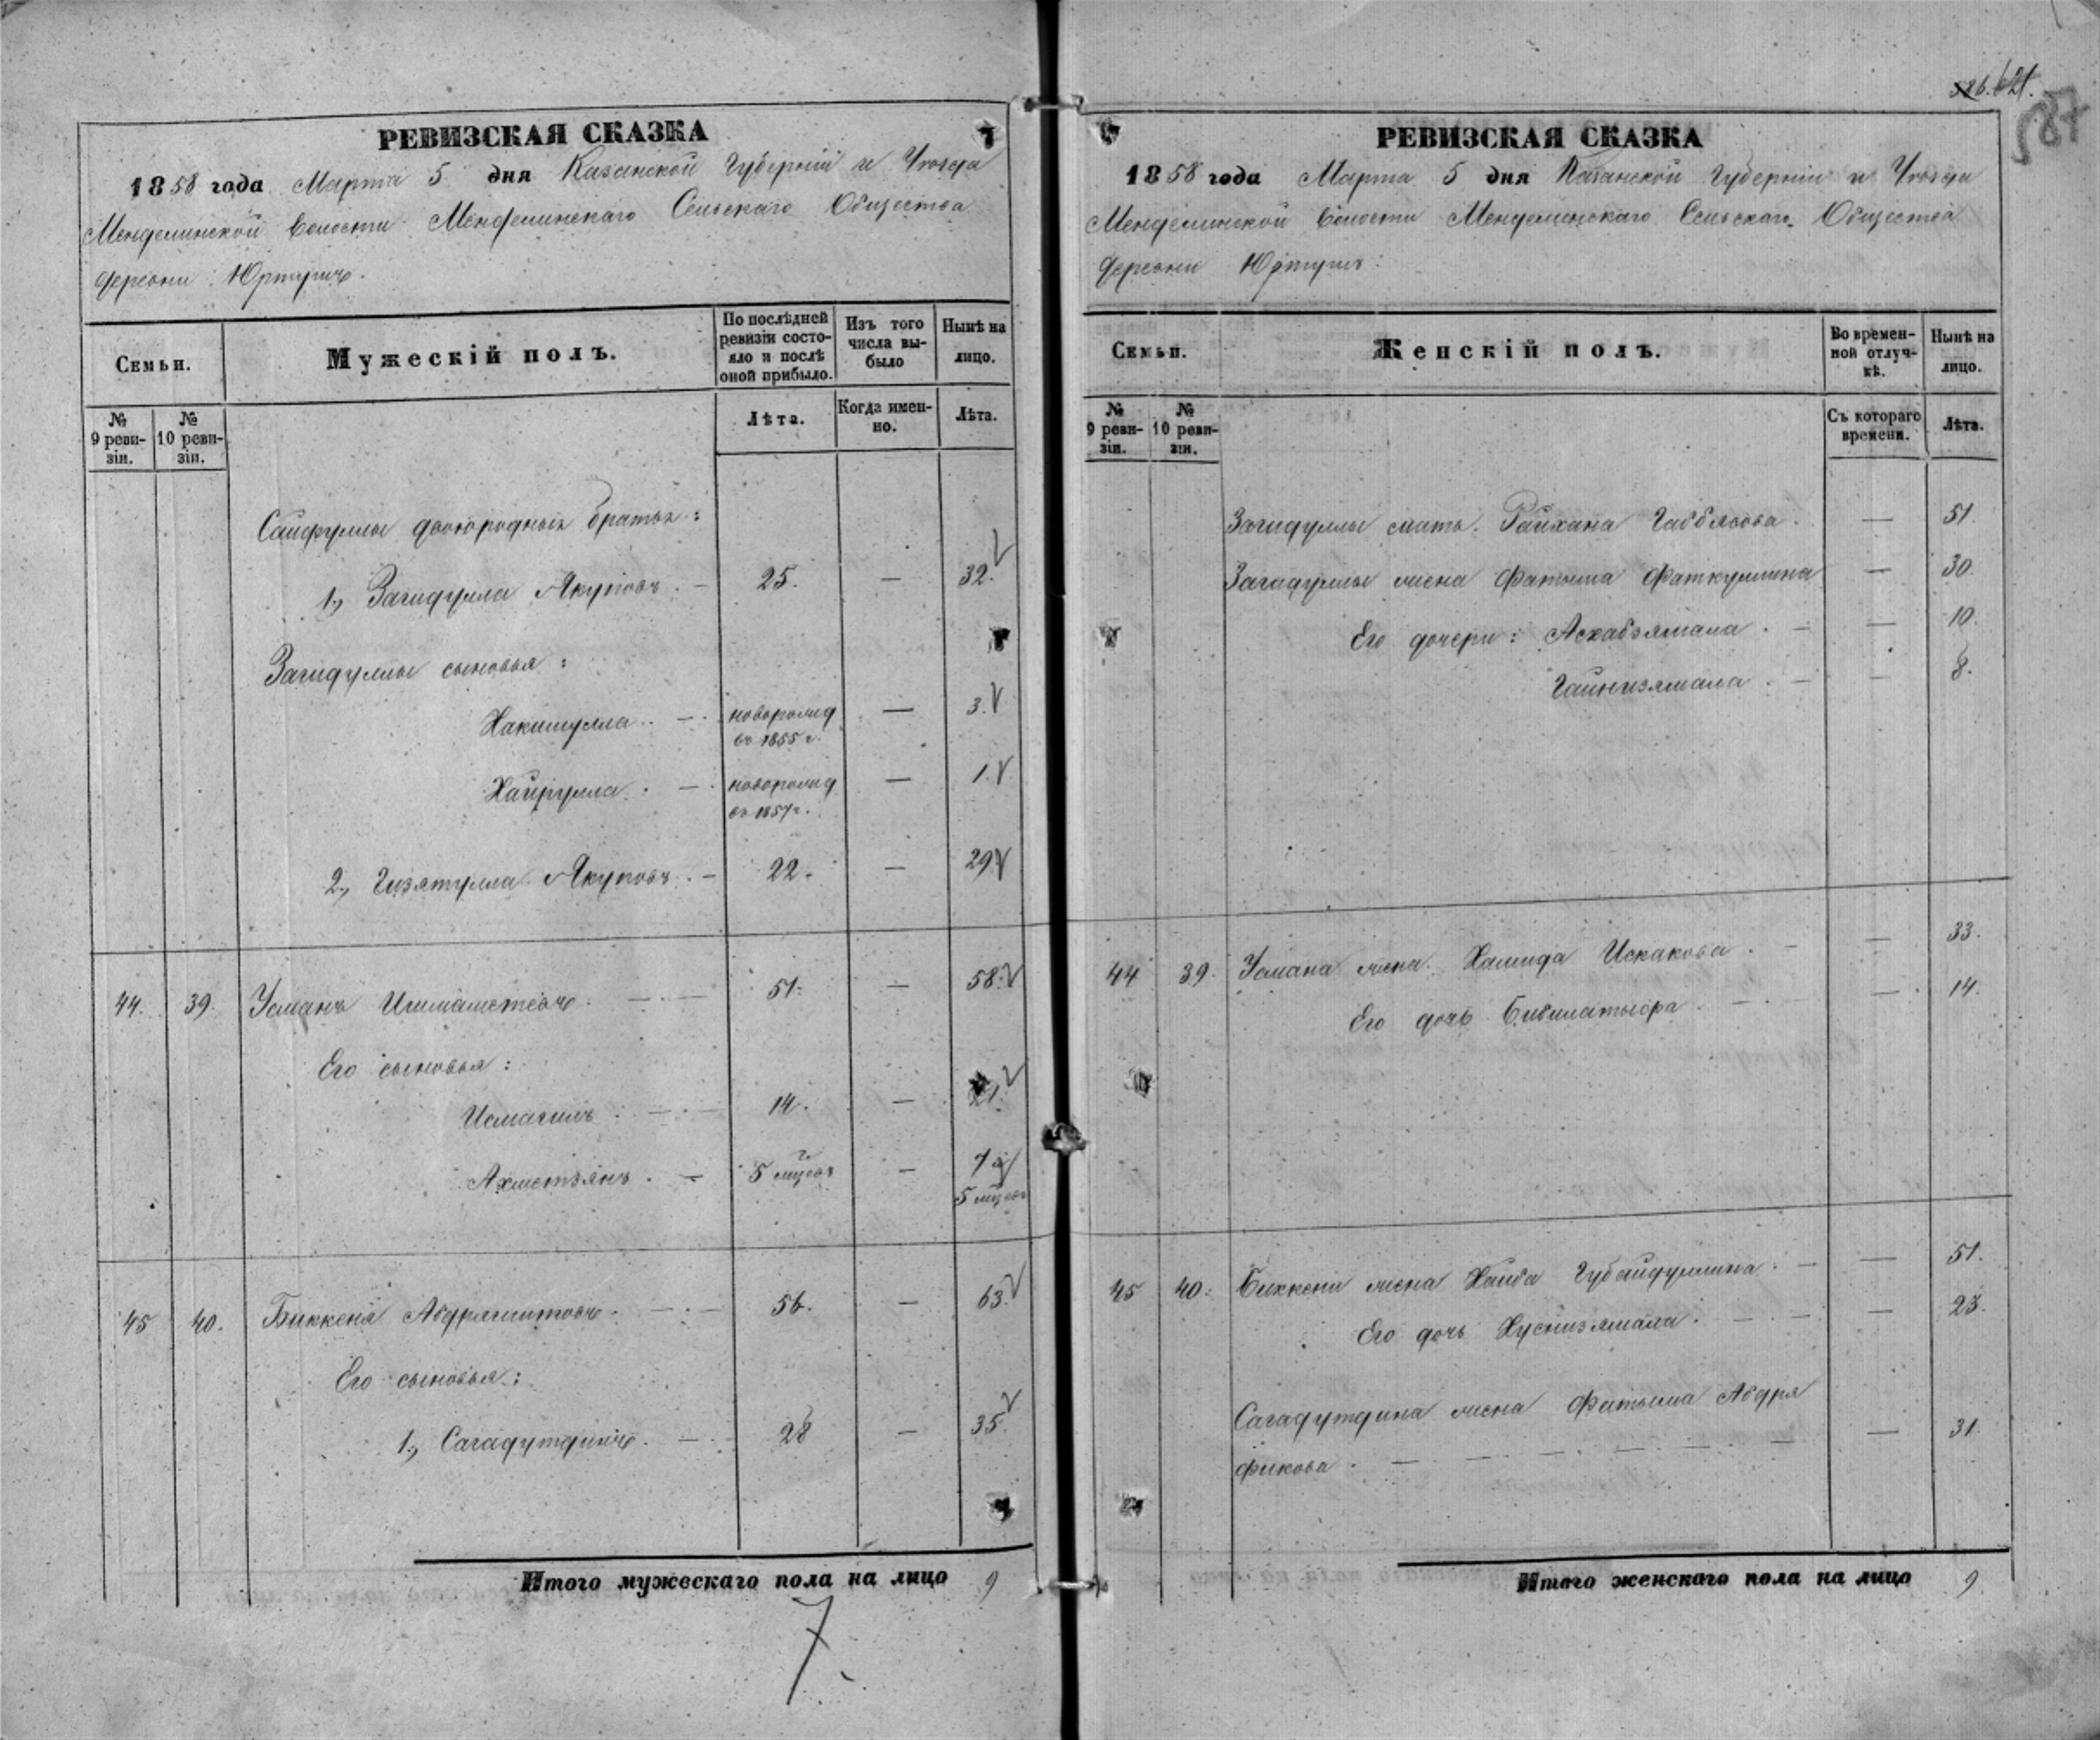 526. 621.
587
РЕВИЗСКАЯ СКАЗКА
1858 года Марта 5 дня Казанской Губерніи и Уѣзда
Менделинской Волости Менделинскаго Сельскаго Общества
деревни Юртушъ.
Семьи.
Мужескій полъ.
По послѣдней ревизіи состояло и послѣ оной прибыло.
Изъ того числа выбыло
Нынѣ на лицо.
№ 9 ревизіи.
№ 10 ревизіи.
Лѣта.
Когда именно.
Лѣта.
Сайфуллы двоюродныя братья:
1., Загидулла Якуповъ. — 25. — 32.
Загидуллы сыновья:
Хакимулла. — новорожд — 3.
въ 1855 г.
Хайрулла. — новорожд — 1.
въ 1857 г.
2., Гизятулла Якуповъ. — 22. — 29
44. 39. Усманъ Ишмаметевъ. — 51. — 58.
Его сыновья:
Исмагилъ. — 14. — 21.
Ахметзянъ. — 5 мцовъ — 7 г
5 мцовъ
45 40. Биккеня Абдряшитовъ. — 56. — 63.
Его сыновья:
1., Сагадутдинъ. — 28 — 35.
Итого мужескаго пола на лицо 9
7.
РЕВИЗСКАЯ СКАЗКА
1858 года Марта 5 дня Казанской Губерніи и Уѣзда
Менделинской Волости Менделинскаго Сельскаго Общества
деревни Юртушъ:
Семьи.
Женскій полъ.
Во временной отлучкѣ.
Нынѣ на лицо.
№ 9 ревизіи.
№ 10 ревизіи.
Съ котораго времени.
Лѣта.
Загидуллы мать Райхана Габбясова. — 51.
Загидуллы жена Фатыма Фаткуллина — 30.
Его дочери: Асхабзямала. — 10.
Гайнизямала. — 8.
44 39. Усмана жена Хамида Искакова. — 33.
Его дочь Бибилатыфа. — 14.
45 40. Биккени жена Хаиба Губайдуллина. — 51.
Его дочь Хуснизямала. — 23.
Сагадутдина жена Фатыма Абдря
фикова. — 31.
Итого женскаго пола на лицо 9